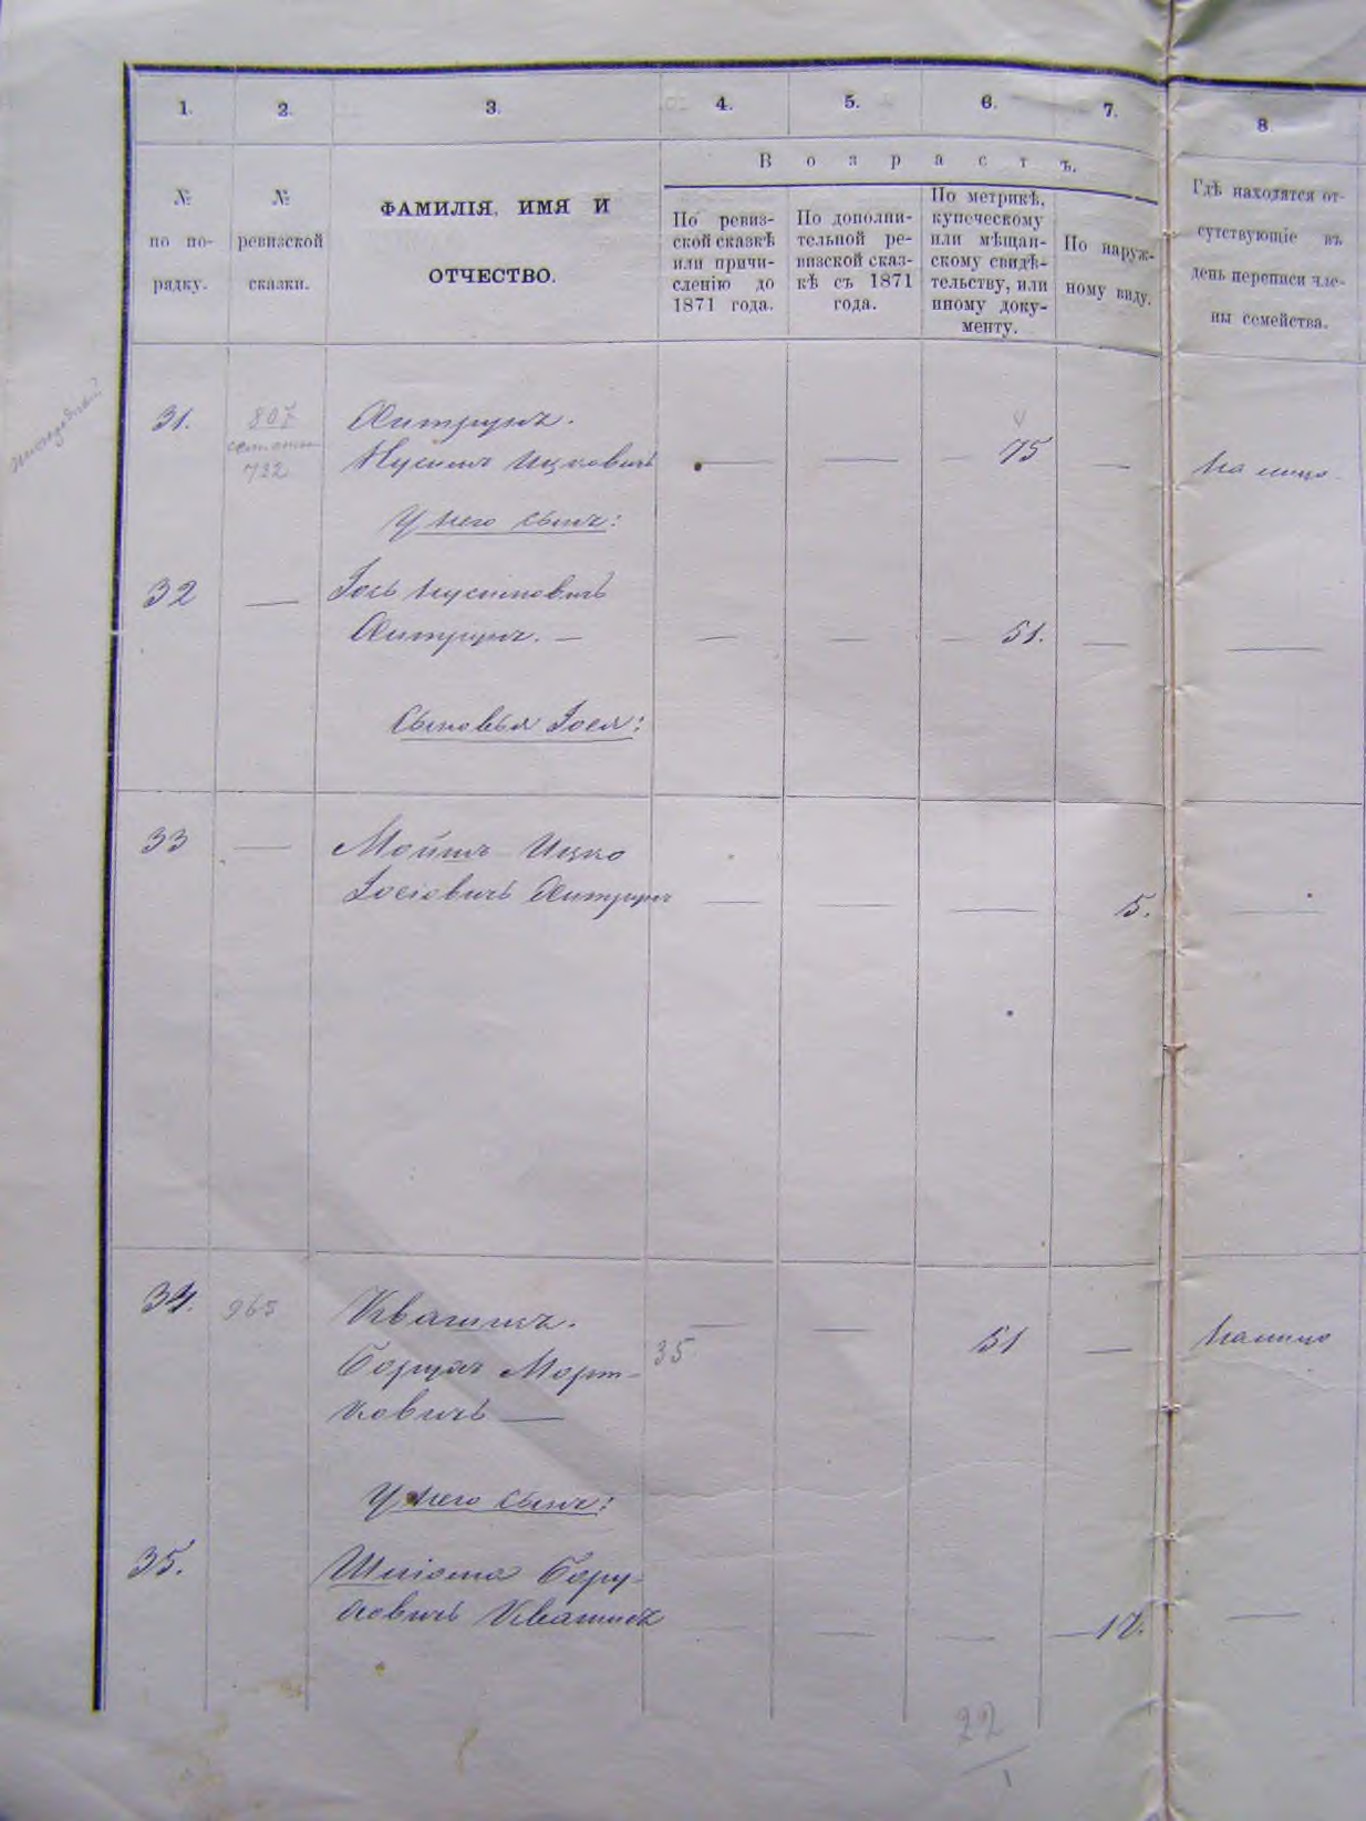 1. 2. 3. 4. 5. 6. 7. 8
В о з р а с т ъ.
№ по по-рядку.
№ ревизской сказки.
ФАМИЛІЯ, ИМЯ И
ОТЧЕСТВО.
По ревиз-
ской сказкѣ
или причи-
сленію до
1871 года.
По дополни-
тельной ре-
визской сказ-
кѣ съ 1871
года.
По метрикѣ,
купеческому
или мѣщан-
скому свидѣ-
тельству, или
иному доку-
менту.
По наруж-
ному виду.
Гдѣ находятся от-
сутствующіе въ
день переписи чле-
ны семейства.
31. 807
722 Нусимъ Ицковичъ — — — 75 — На лицо
У него сынъ:
32 — Іось Нусимовичъ
— — — 51. — —
Сыновья Іося:
33 — Мойшъ Ицко
Іосіовичъ — — — 5. —
34. 965 Квашикъ. — — 51 — Налицо
Борухъ Морт- 35
ковичъ —
У него сынъ:
35. Шліома Бору-
ховичъ Квашикъ — — — — 17. —
22
1